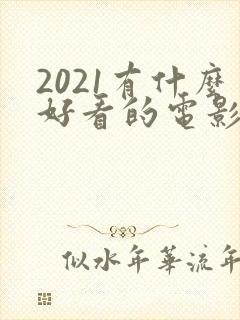 2021有什麼
好看的電影
似水年華流年